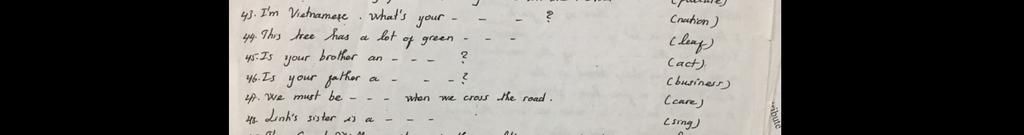 43. I'm Vietnamese. What's your - - - ? (nation)
44. This tree has a lot of green - - - (leaf)
45. Is your brother an - - - ? (act)
46. Is your father a - - - ? (business)
47. We must be - - - when we cross the road. (care)
48. Linh's sister is a - - - (sing)